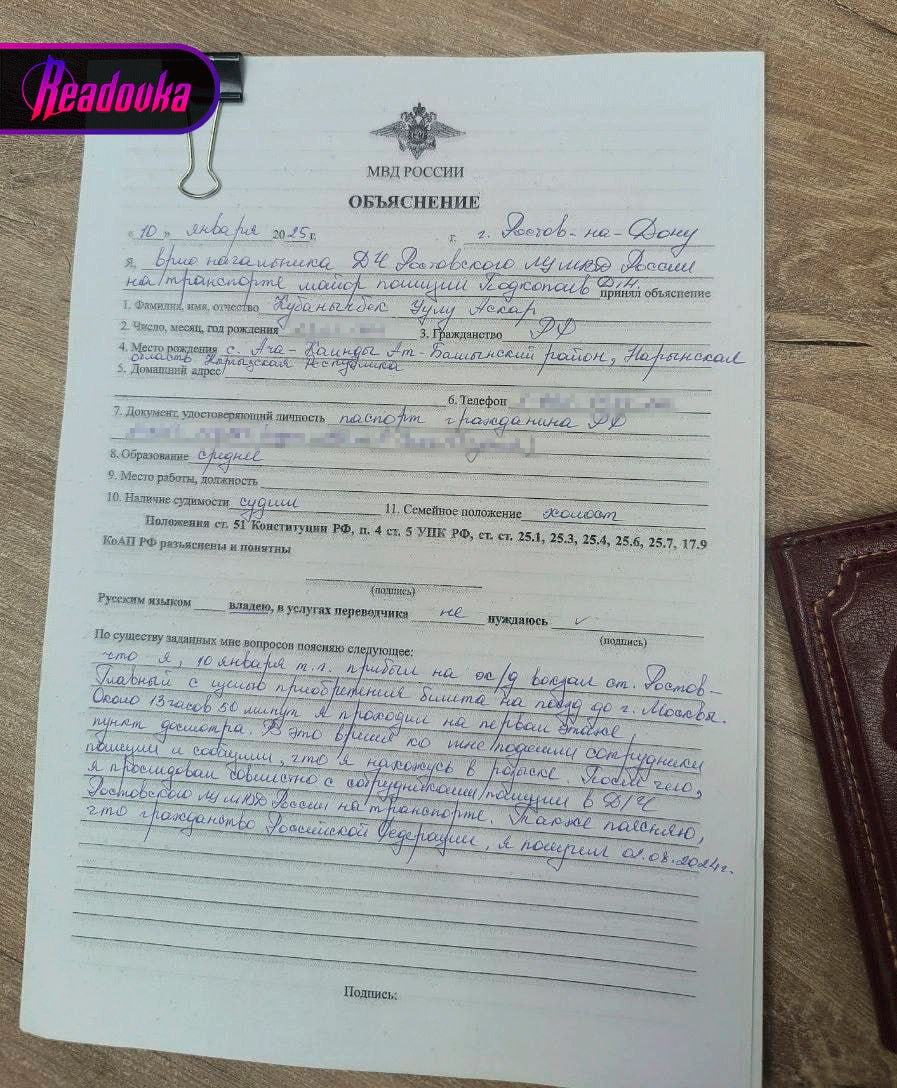 Readovka
МВД РОССИИ
ОБЪЯСНЕНИЕ
« 10 » января 2025 г. г. г. Ростов-на-Дону
Я, врио начальника ДЧ Ростовского ЛУ МВД России
на транспорте майор полиции Подкопаев Д.Н. принял объяснение
1. Фамилия, имя, отчество Кубанычбек Уулу Аскар
2. Число, месяц, год рождения 3. Гражданство РФ
4. Место рождения с. Ача-Каинды Ат-Башынский район, Нарынская
область Кыргызская Республика
5. Домашний адрес
6. Телефон
7. Документ, удостоверяющий личность паспорт гражданина РФ
8. Образование среднее
9. Место работы, должность
10. Наличие судимости судим 11. Семейное положение холост
Положения ст. 51 Конституции РФ, п. 4 ст. 5 УПК РФ, ст. ст. 25.1, 25.3, 25.4, 25.6, 25.7, 17.9
КоАП РФ разъяснены и понятны
(подпись)
Русским языком владею, в услугах переводчика не нуждаюсь
(подпись)
По существу заданных мне вопросов поясняю следующее:
что я, 10 января т.г. прибыл на ж/д вокзал ст. Ростов-
Главный с целью приобретения билета на поезд до г. Москвы.
Около 13 часов 50 минут я проходил на первом этаже,
пункт досмотра. В это время ко мне подошли сотрудники
полиции и сообщили, что я нахожусь в розыске. После чего,
я проследовал совместно с сотрудниками полиции в ДЧ
Ростовского ЛУ МВД России на транспорте. Также поясняю,
что гражданство Российской Федерации, я получил 02.08.2024г.
Подпись: